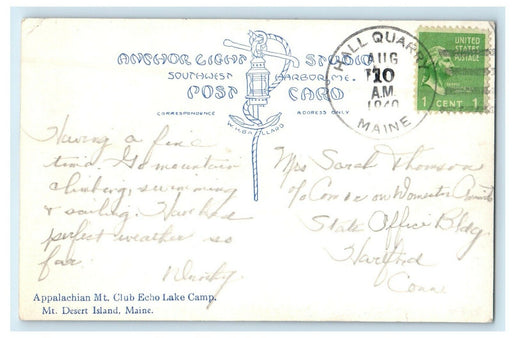 ANCHOR LIGHT STUDIO
SOUTHWEST HARBOR ME.
POST CARD
CORRESPONDENCE ADDRESS ONLY
W.H. BALLARD
HALL QUARRY
AUG
10
A.M.
1940
MAINE
UNITED
STATES
POSTAGE
1 CENT 1
Having a fine
time. Go mountain
climbing, swimming
& sailing. Have had
perfect weather so
far.
Mrs Sarah Thomson
c/o Com on Domestic
State Office Bldg.
Hartford
Conn
Appalachian Mt. Club Echo Lake Camp.
Mt. Desert Island, Maine.